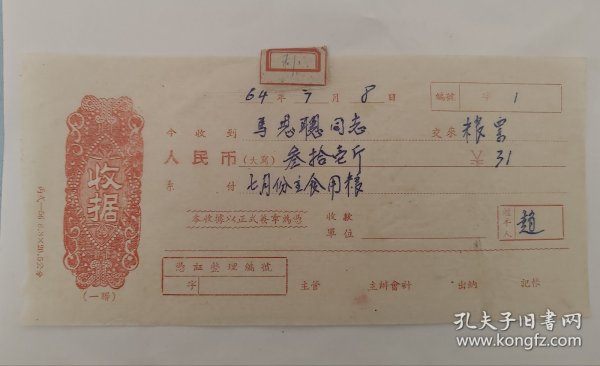 64年7月8日
編號 字 1
今收到 馬思聰同志 交來 粮票
人民币(大寫) 叁拾壹斤 31
系付 七月份主食用粮
本收據以正式簽章為憑
收款單位
經手人 趙
憑証整理編號
字
主管 主辦會計 出納 記帐
收据
(一聯)
孔夫子旧书网
www.kongfz.com